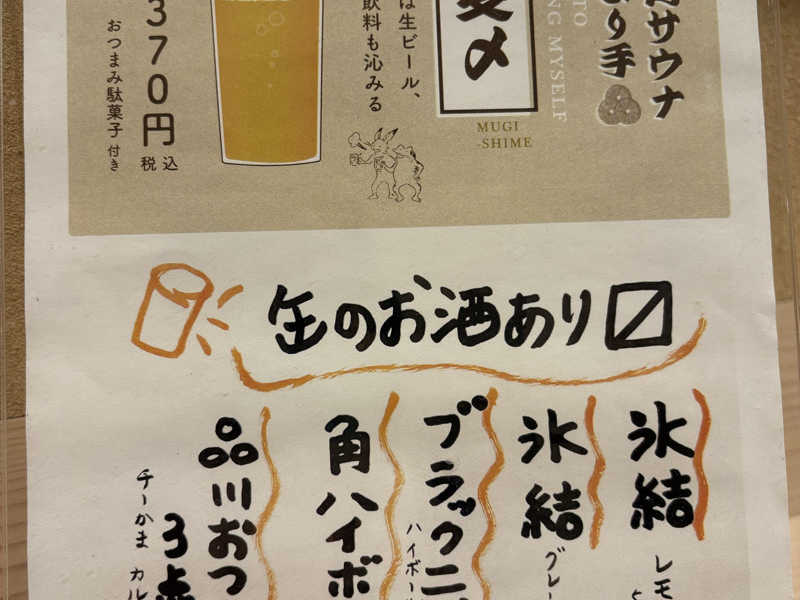 サウナ
り手
TO
NG MYSELF
〆
MUGI
-SHIME
は生ビール、
飲料も沁みる
370円
税込
おつまみ駄菓子付き
缶のお酒あり〼
氷結
レモ
氷結
グレー
ブラックニ
ハイボー
角ハイボ
品川おつ
3点
チーかま カル